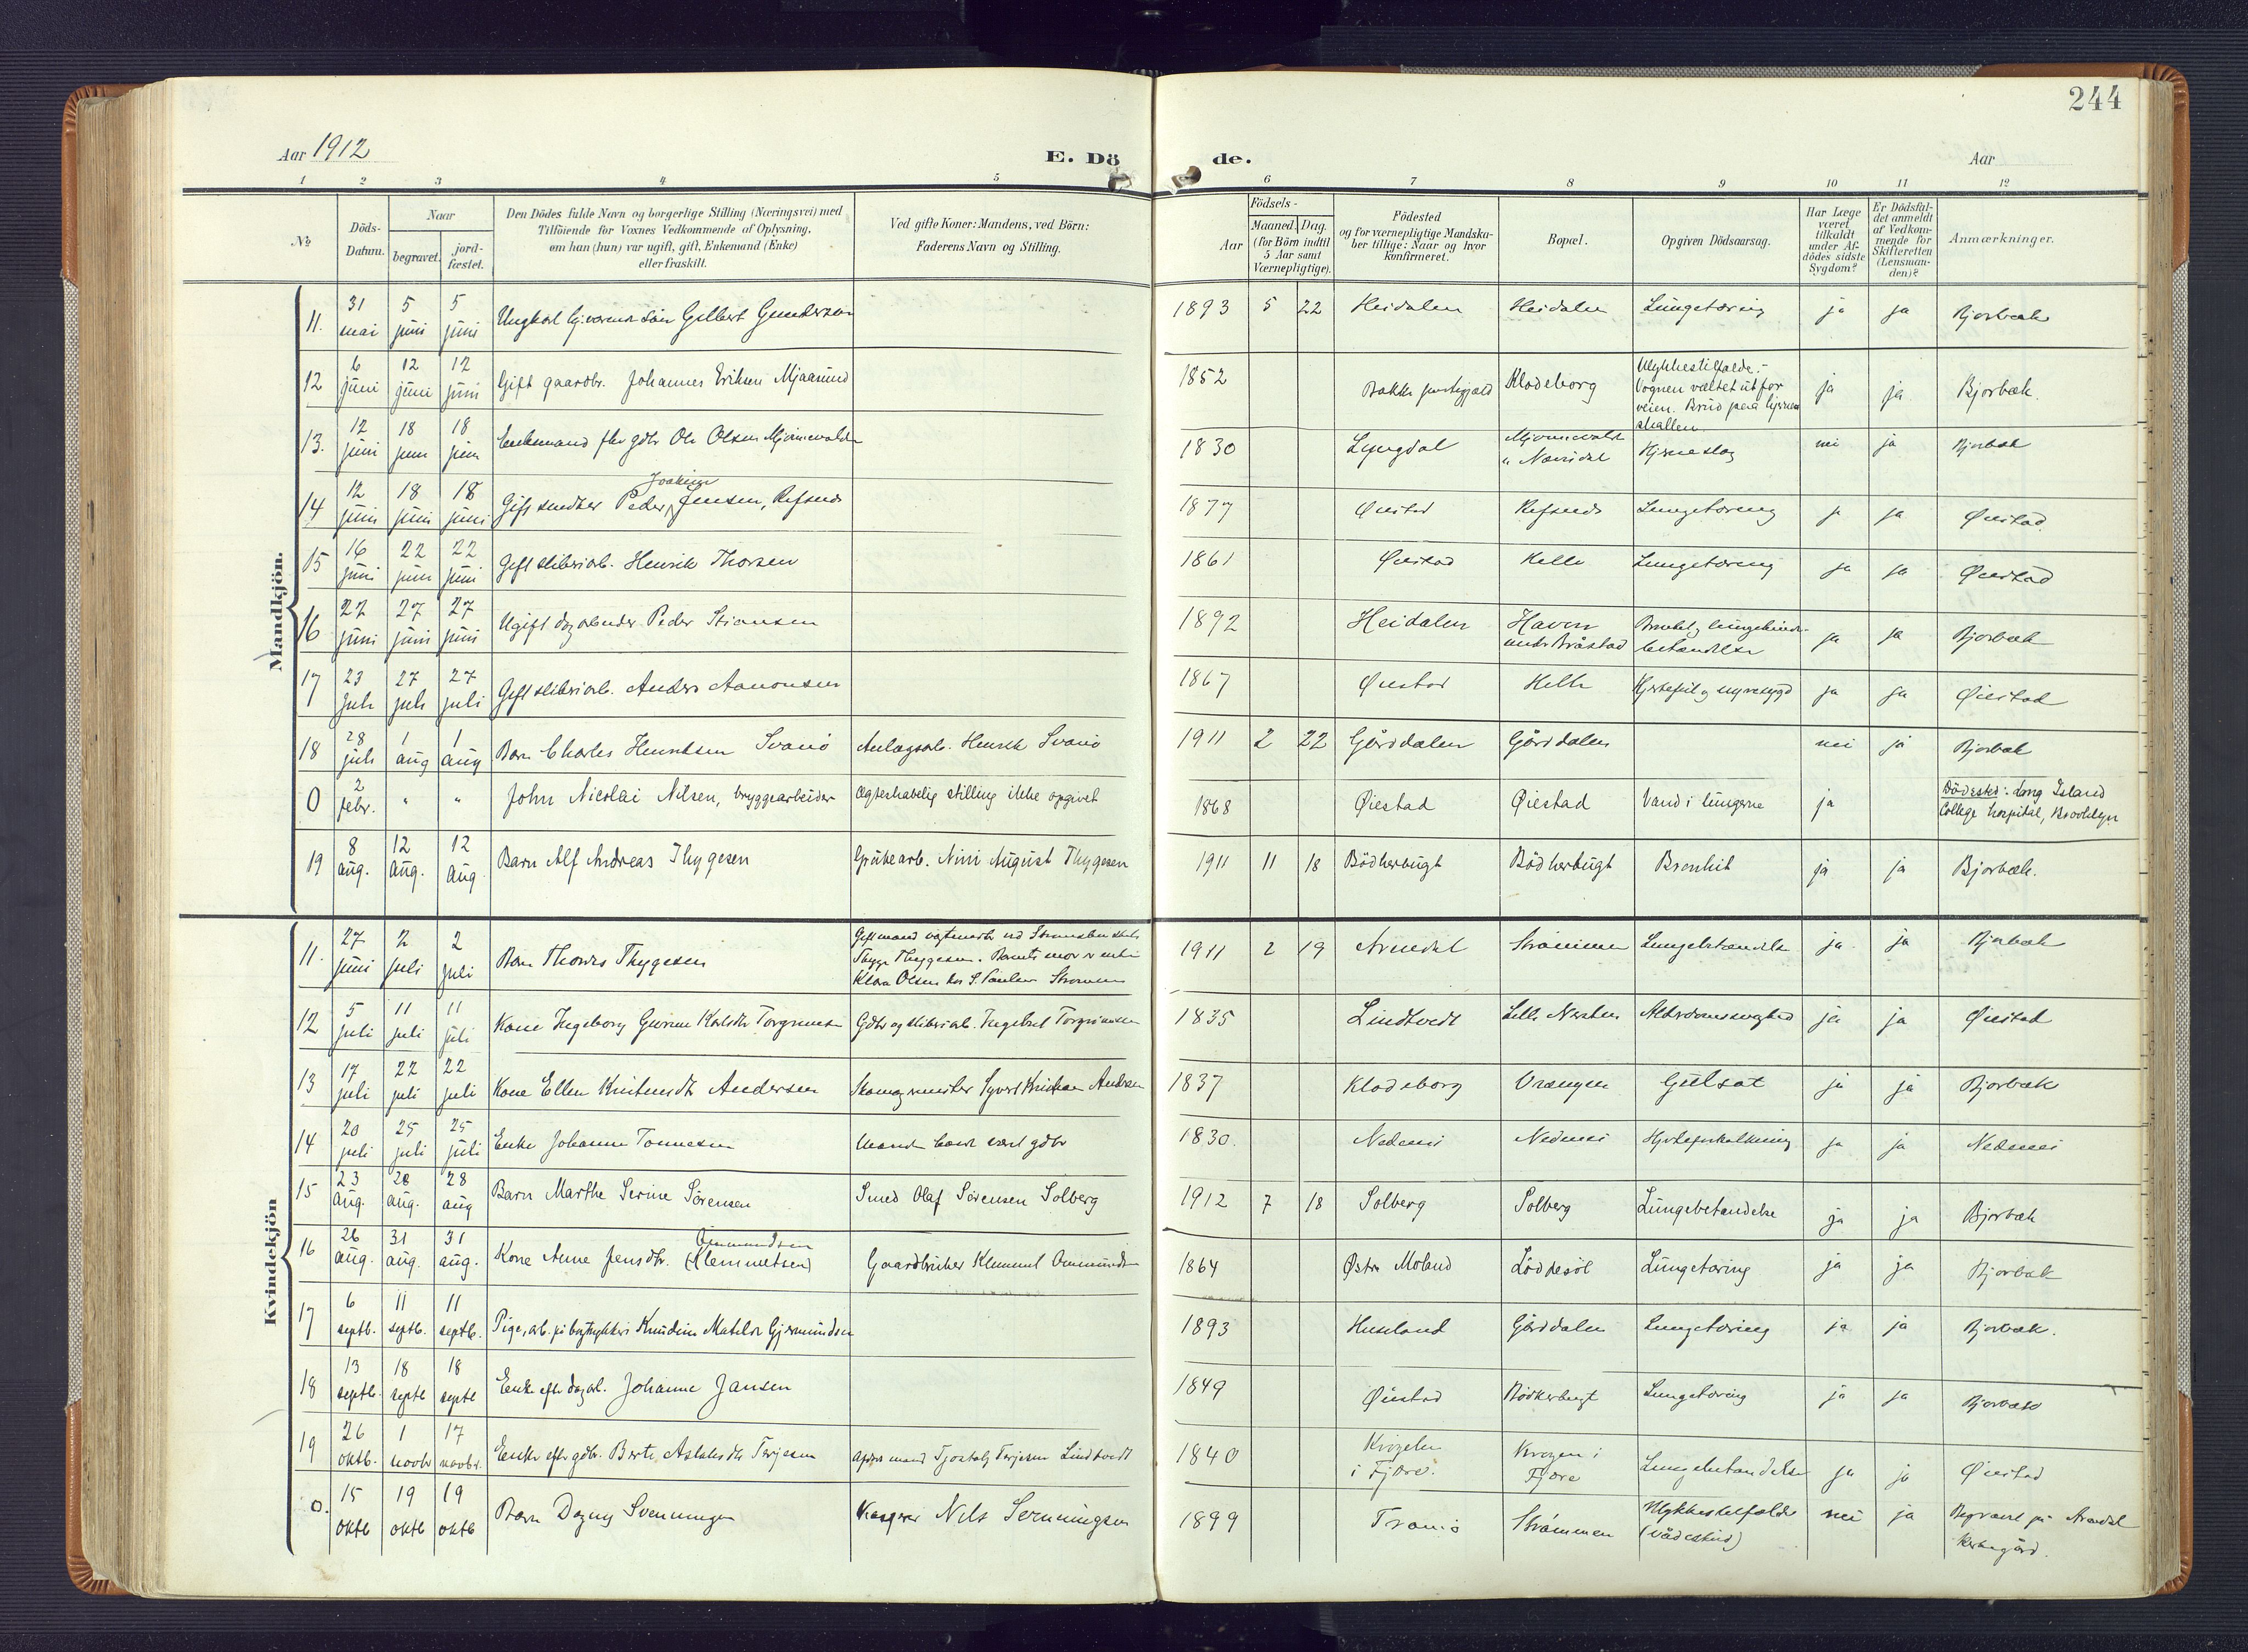 244
Aar 1912
E. Dö de.
Aar
1 2 3 4 5 6 7 8 9 10 11 12
№
Döds-Datum.
Naar
begravet. jordfæstet.
Den Dödes fulde Navn og borgerlige Stilling (Næringsvei) med
Tilföiende for Voxnes Vedkommende af Oplysning,
om han (hun) var ugift, gift, Enkemand (Enke)
eller fraskilt.
Ved gifte Koner: Mandens, ved Börn:
Faderens Navn og Stilling.
Födsels-
Aar Maaned. Dag.
(for Börn indtil
5 Aar samt
Værnepligtige).
Födested
og for værnepligtige Mandska-
ber tillige: Naar og hvor
konfirmeret.
Bopæl.
Opgiven Dödsaarsag.
Har Læge
været
tilkaldt
under Af-
dödes sidste
Sygdom?
Er Dödsfal-
det anmeldt
af Vedkom-
mende for
Skifteretten
(Lensman-
den)?
Anmærkninger.
Mandkjön.
11. 31 mai 5 juni 5 juni Ungkarl Gilbert Gundersen 1893 5 22 Heidalen Heidalen Lungetæring ja ja Bjorbæk
12 6 juni 12 juni 12 juni Gift gaardbr. Johannes Eriksen Mjaasund 1852 Bakke Klodeborg Ulykkestilfælde.-
Vognen væltet utfor
veien. Brud paa hjerne
skallen ja ja Bjorbæk.
13. 12 juni 18 juni 18 juni Enkemand fhv gdbr Ole Olsen 1830 Lyngdal Hjerneslag nei ja Bjorbæk
14 12 juni 18 juni 18 juni Gift snedker Peder Joakim Jensen, Refsnes 1877 Øiestad Refsnes Lungetæring ja ja Øiestad
15 16 juni 22 juni 22 juni Gift sliberiarb. Henrik Thorsen 1861 Øiestad Helle Lungetæring ja ja Øiestad
16 22 juni 27 juni 27 juni Ugift dagarbeider Peder Stiansen 1892 Heidalen Haven
under Bråstad Bronkit og lungehinde-
betændelse ja ja Bjorbæk
17 23 Juli 27 juli 27 juli Gift sliberiarb. Anders Aanonsen 1867 Øiestad Helle Hjertefeil og nyresygd ja ja Øiestad
18 28 juli 1 aug 1 aug Barn Charles Henriksen Svanø Anlægsarb. Henrik Svanø 1911 2 22 Gårddalen Gårddalen nei ja Bjorbæk
0 2 febr. " " John Nicolai Nilsen, bryggearbeider Ægteskabelig stilling ikke opgivet 1868 Øiestad Øiestad Vand i lungerne ja Dödssted: Long Island
College hospital, Brooklyn
19 8 aug. 12 aug. 12 aug Barn Alf Andreas Thygesen Grubearb. Nini August Thygesen 1911 11 18 Bödkerbugt Bödkerbugt Bronkit ja ja Bjorbæk.
Kvindekjön
11. 27 juni 2 juli 2 juli Barn Thordis Thygesen Gift mand
Thygesen. Barnets mor er enke
Klara Olsen hos S. Paulsen Strømmen 1911 2 19 Arendal Strømmen Lungebetændelse ja ja Bjorbæk
12 5 juli 11 juli 11 juli Kone Ingeborg Gurine Karlsdtr Torgrimsen Gdbr og sliberiarb. Ingebret Torgrimsen 1835 Lindtvedt Lille Næsten Alderdomssvaghed ja ja Øiestad
13 17 juli 22 juli 22 juli Kone Ellen Knutsdtr Andersen Skomagermester Syvert Kristian Andersen 1837 Klodeborg Vrængen Gulsot ja ja Bjorbæk
14 20 juli 25 juli 25 juli Enke Johanne Tønnesen Manden havde været gdbr 1830. Nedenes Nedenes Hjerteforkalkning ja ja Nedenes
15 23 aug. 28 aug. 28 aug Barn Marthe Serine Sörensen Smed Olaf Sörensen Solberg 1912 7 18 Solberg Solberg Lungebetændelse ja ja Bjorbæk
16 26 aug. 31 aug. 31 aug. Kone Anne Jensdtr. Ommundsen (Klemmetsen) Gaardbruker Klemmet Ommundsen 1864 Østre Moland Löddesöl Lungetæring ja ja Bjorbæk
17 6 septb. 11 septb. 11 septb. Pige, arb. på bogtrykkeri Knudine Matilde Gjermundsen 1893 Huseland Gårddalen Lungetæring ja ja Bjorbæk.
18 13 septb. 18 septb 18 septb Enke efter dagarb. Johanne Jansen 1849 Øiestad Bödkerbugt Lungetæring ja ja Bjorbæk
19 26 oktb. 1 novbr 17 novbr. Enke efter gdbr. Berte Aslaksdtr Terjesen Afdøde mand Tjostolf Terjesen Lindtvedt 1840 i Fjære. i
Fjære Lungebetændelse ja ja Øiestad
0. 15 oktb 19 oktb 19 oktb Barn Dagny Svenningsen Nils Svenningsen 1899 Tromö Strømmen Ulykkestilfælde
(vådeskud) nei ja Begravet på Arendal
kirkegård.